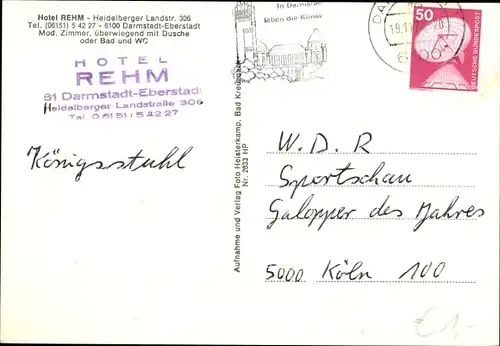 Hotel REHM - Heidelberger Landstr. 306
Tel. (06151) 5 42 27 - 6100 Darmstadt-Eberstadt
Mod. Zimmer, überwiegend mit Dusche
oder Bad und WC
HOTEL
REHM
61 Darmstadt-Eberstadt
Heidelberger Landstraße 306
Tel. 06151/54227
Königsstuhl
Aufnahme und Verlag Foto Heisterkamp, Bad Kreuznach
Nr. 2833 HP
In Darmstadt
leben die Künste
50
DEUTSCHE BUNDESPOST
W. D. R
Sportschau
Galopper des Jahres
5000 Köln 100
€ 1,-